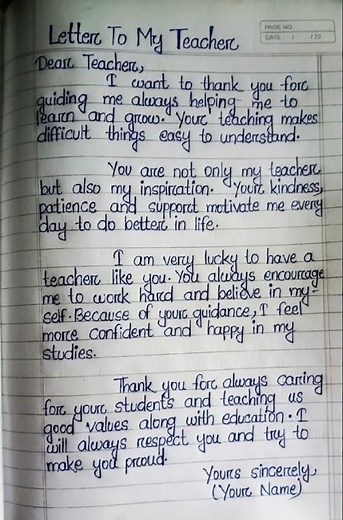 PAGE NO.
DATE : / /20
Letter To My Teacher
Dear Teacher,
I want to thank you for
guiding me always helping me to
learn and grow. Your teaching makes
difficult things easy to understand.
You are not only my teacher
but also my inspiration. Your kindness,
patience and support motivate me every
day to do better in life.
I am very lucky to have a
teacher like you. You always encourage
me to work hard and believe in my-
self. Because of your guidance, I feel
more confident and happy in my
studies.
Thank you for always caring
for your students and teaching us
good values along with education. I
will always respect you and try to
make you proud.
Yours sincerely,
(Your Name)